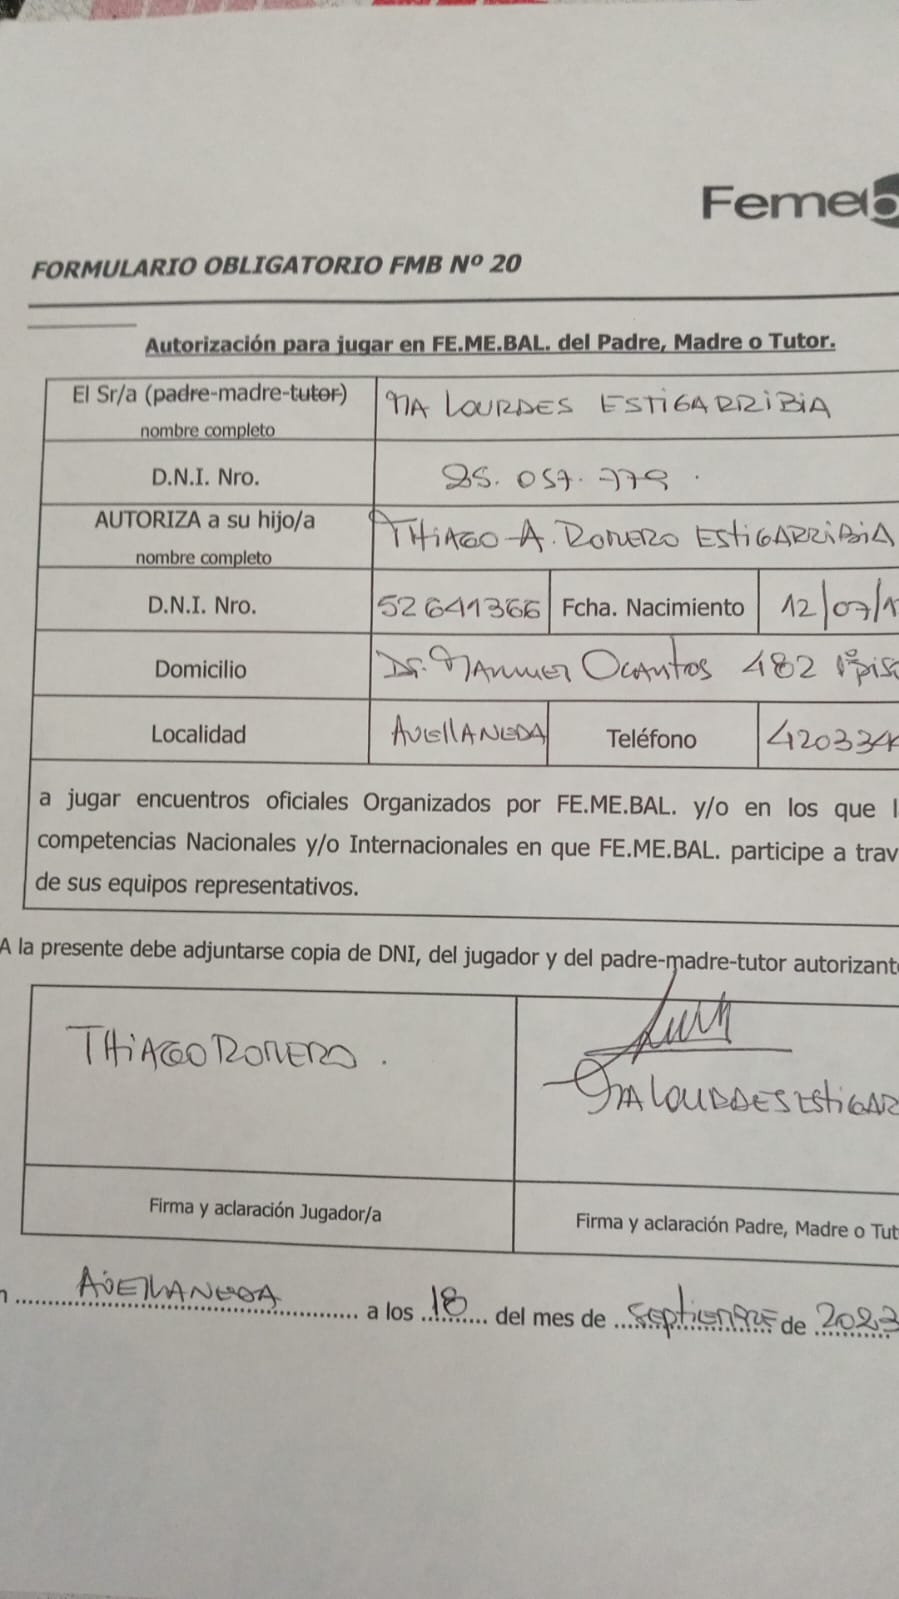 Femeb
FORMULARIO OBLIGATORIO FMB Nº 20
Autorización para jugar en FE.ME.BAL. del Padre, Madre o Tutor.
El Sr/a (padre-madre-tutor) MA LOURDES ESTIGARRIBIA
nombre completo
D.N.I. Nro. 25.057.779.
AUTORIZA a su hijo/a THIAGO A. ROMERO ESTIGARRIBIA
nombre completo
D.N.I. Nro. 52641366 Fcha. Nacimiento 12/07/1
Domicilio Dr. MANUEL OCANTOS 482 1º pis
Localidad AVELLANEDA Teléfono 420334
a jugar encuentros oficiales Organizados por FE.ME.BAL. y/o en los que l
competencias Nacionales y/o Internacionales en que FE.ME.BAL. participe a trav
de sus equipos representativos.
A la presente debe adjuntarse copia de DNI, del jugador y del padre-madre-tutor autorizant
THIAGO ROMERO.
MA LOURDES ESTIGAR
Firma y aclaración Jugador/a
Firma y aclaración Padre, Madre o Tut
n AVELLANEDA a los 18 del mes de SEPTIEMBRE de 2023